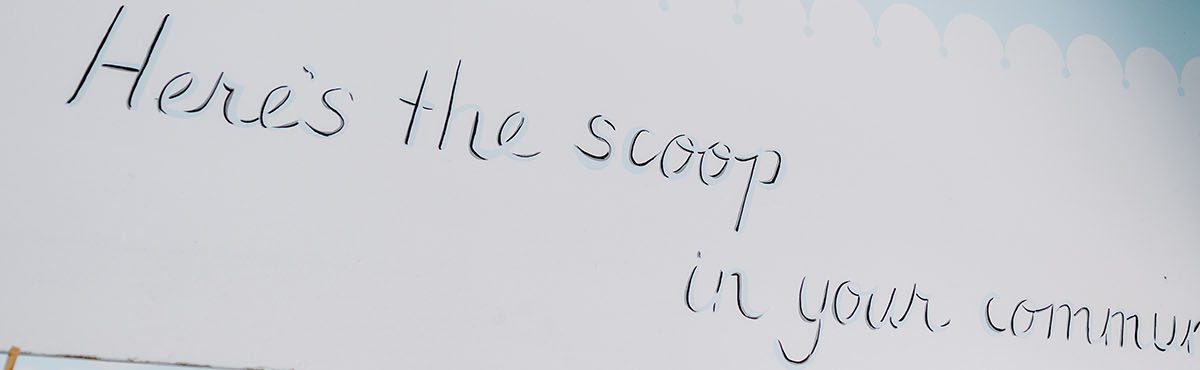 Here's the scoop
in your commun